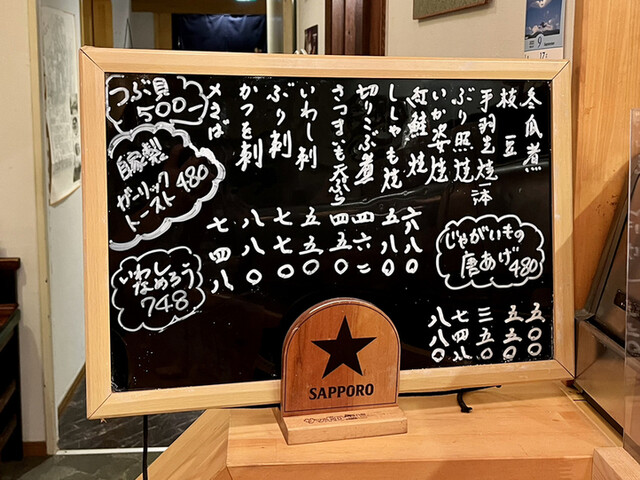 冬瓜煮 五〇〇
枝豆 五五〇
手羽先焼一本 三五〇
ぶり照焼 七四八
いか姿焼 八八〇
紅鮭焼 六八〇
ししゃも焼 五八〇
切りこぶ煮 四六二
さつまいも天ぷら 四五〇
いわし刺 五五〇
ぶり刺 七七〇
かつを刺 八八〇
〆さば 七四八
じゃがいもの
唐あげ 480
つぶ貝
500-
自家製
ガーリック
トースト 480
いわし
なめろう
748
SAPPORO
9